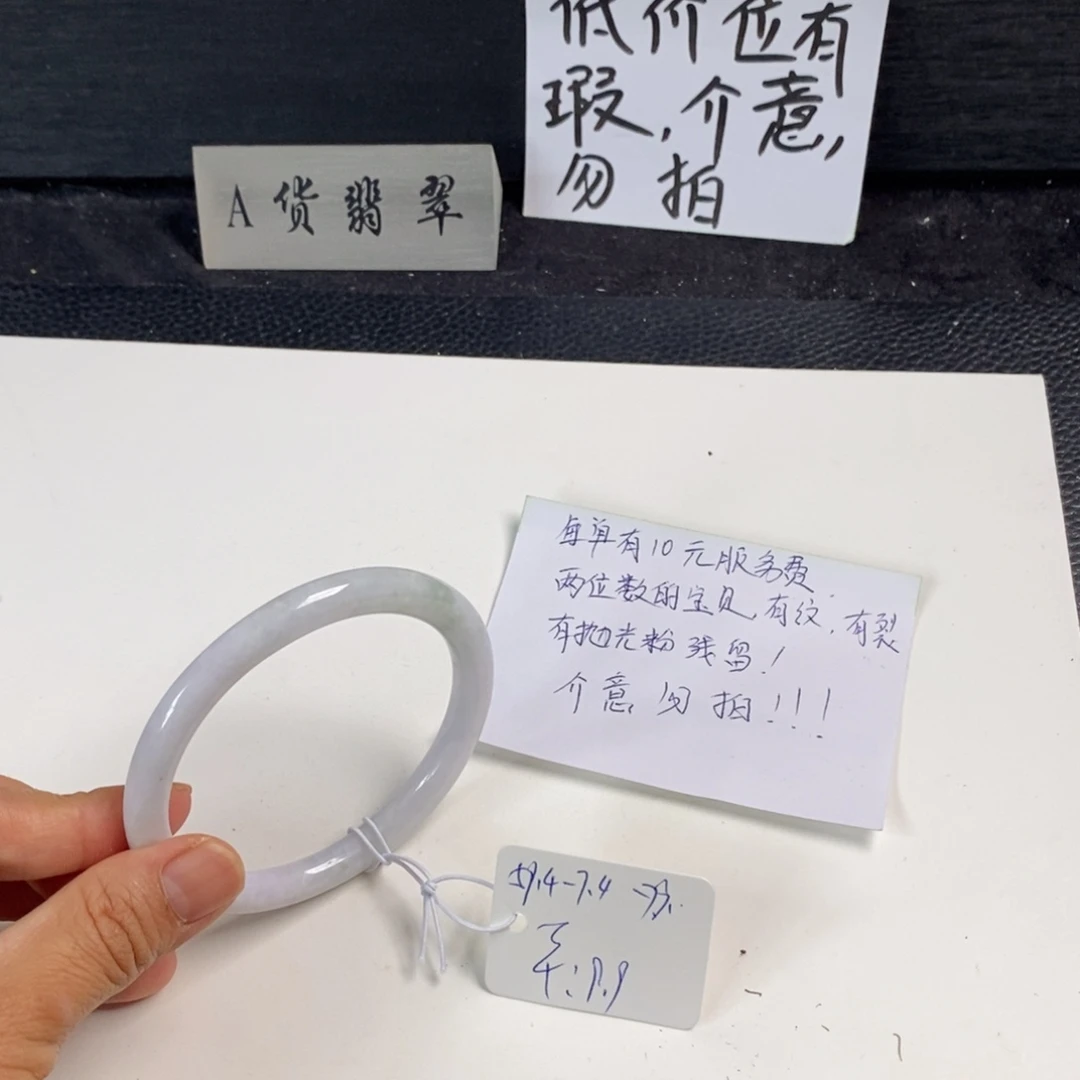 低价位有
瑕,介意,
勿拍
A货翡翠
每单有10元服务费
两位数的宝贝,有纹,有裂
有抛光粉残留!
介意勿拍!!!